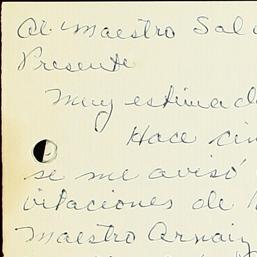 Al Maestro Sal
Presente
Muy estimad
Hace cin
se me avisó
vitaciones de
Maestro Arnaiz